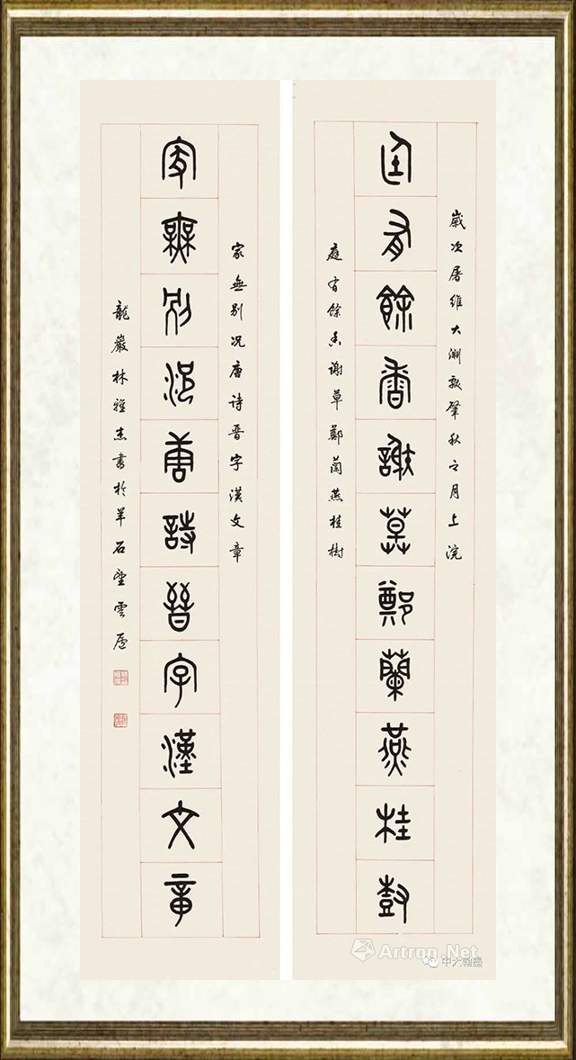 歲次屠維大淵獻肇秋之月上浣
庭有餘香謝草鄭蘭燕桂樹
庭有餘香謝草鄭蘭燕桂樹
家無別況唐詩晉字漢文章
家無別況唐詩晉字漢文章
龍巖林雅杰書於羊石望雲廬
Artron.Net
中大翰墨